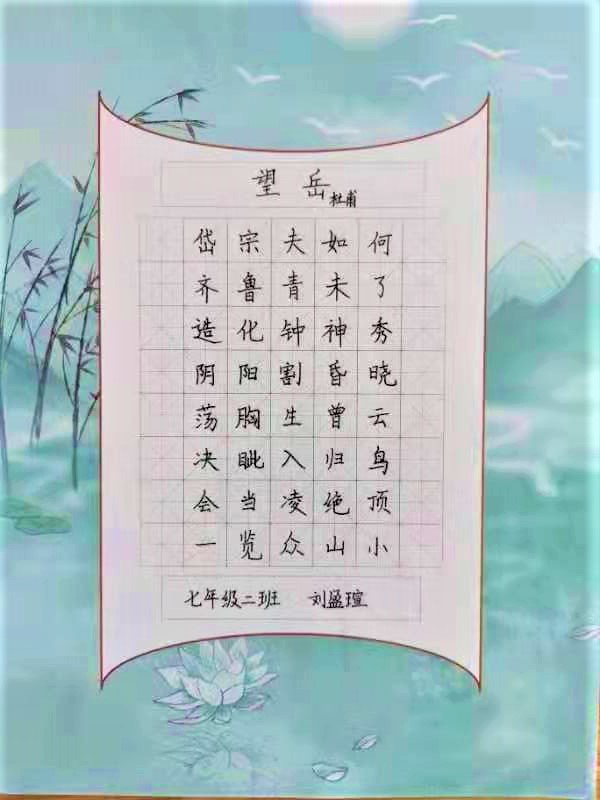 望岳
杜甫
岱宗夫如何
齐鲁青未了
造化钟神秀
阴阳割昏晓
荡胸生曾云
决眦入归鸟
会当凌绝顶
一览众山小
七年级二班 刘盈瑄